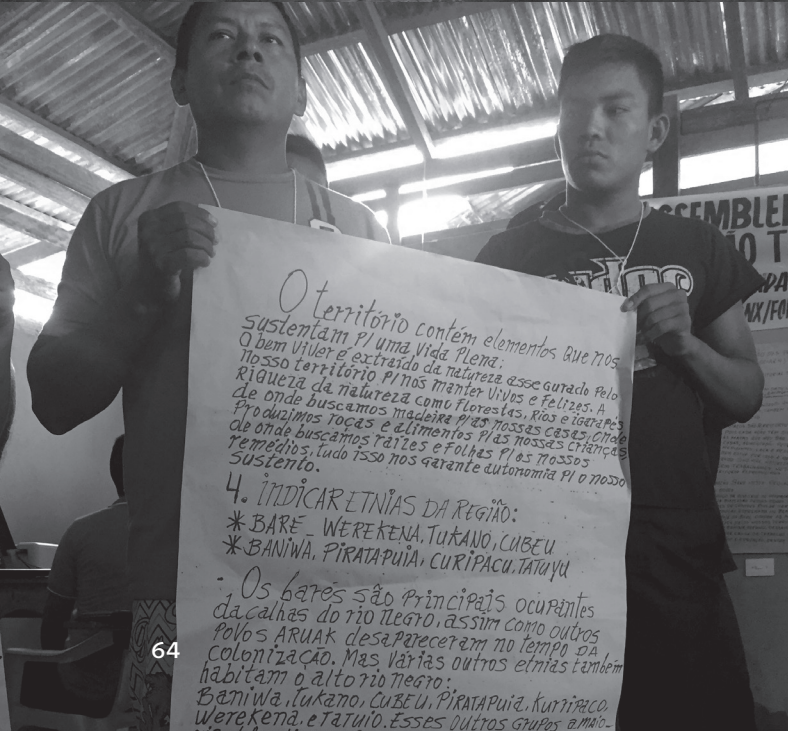 O território contém elementos que nos
sustentam P/ uma vida Plena:
O bem viver é extraído da natureza assegurado Pelo
nosso território P/ nós manter vivos e felizes. A
Riqueza da natureza como florestas, Rios e igarapés
de onde buscamos madeira P/ as nossas casas, onde
Produzimos roças e alimentos P/ as nossas crianças,
de onde buscamos raízes e folhas P/ os nossos
remédios, tudo isso nos garante autonomia P/ o nosso
sustento.
4. INDICAR ETNIAS DA REGIÃO:
* BARÉ - WEREKENA, TUKANO, CUBEU
* BANIWA, PIRATAPUIA, CURIPACU, TATUYU
Os bares são principais ocupantes
da calhas do rio negro, assim como outros
Povos ARUAK desapareceram no tempo DA
colonização. Mas várias outros etnias também
habitam o alto rio negro:
Baniwa, tukano, CUBEU, PIRATAPUIA, KURRIPACO,
Werekena, e TATUIO. Esses outros grupos a maio-
SSEMBLEI
ÃO T
NX/FO
64